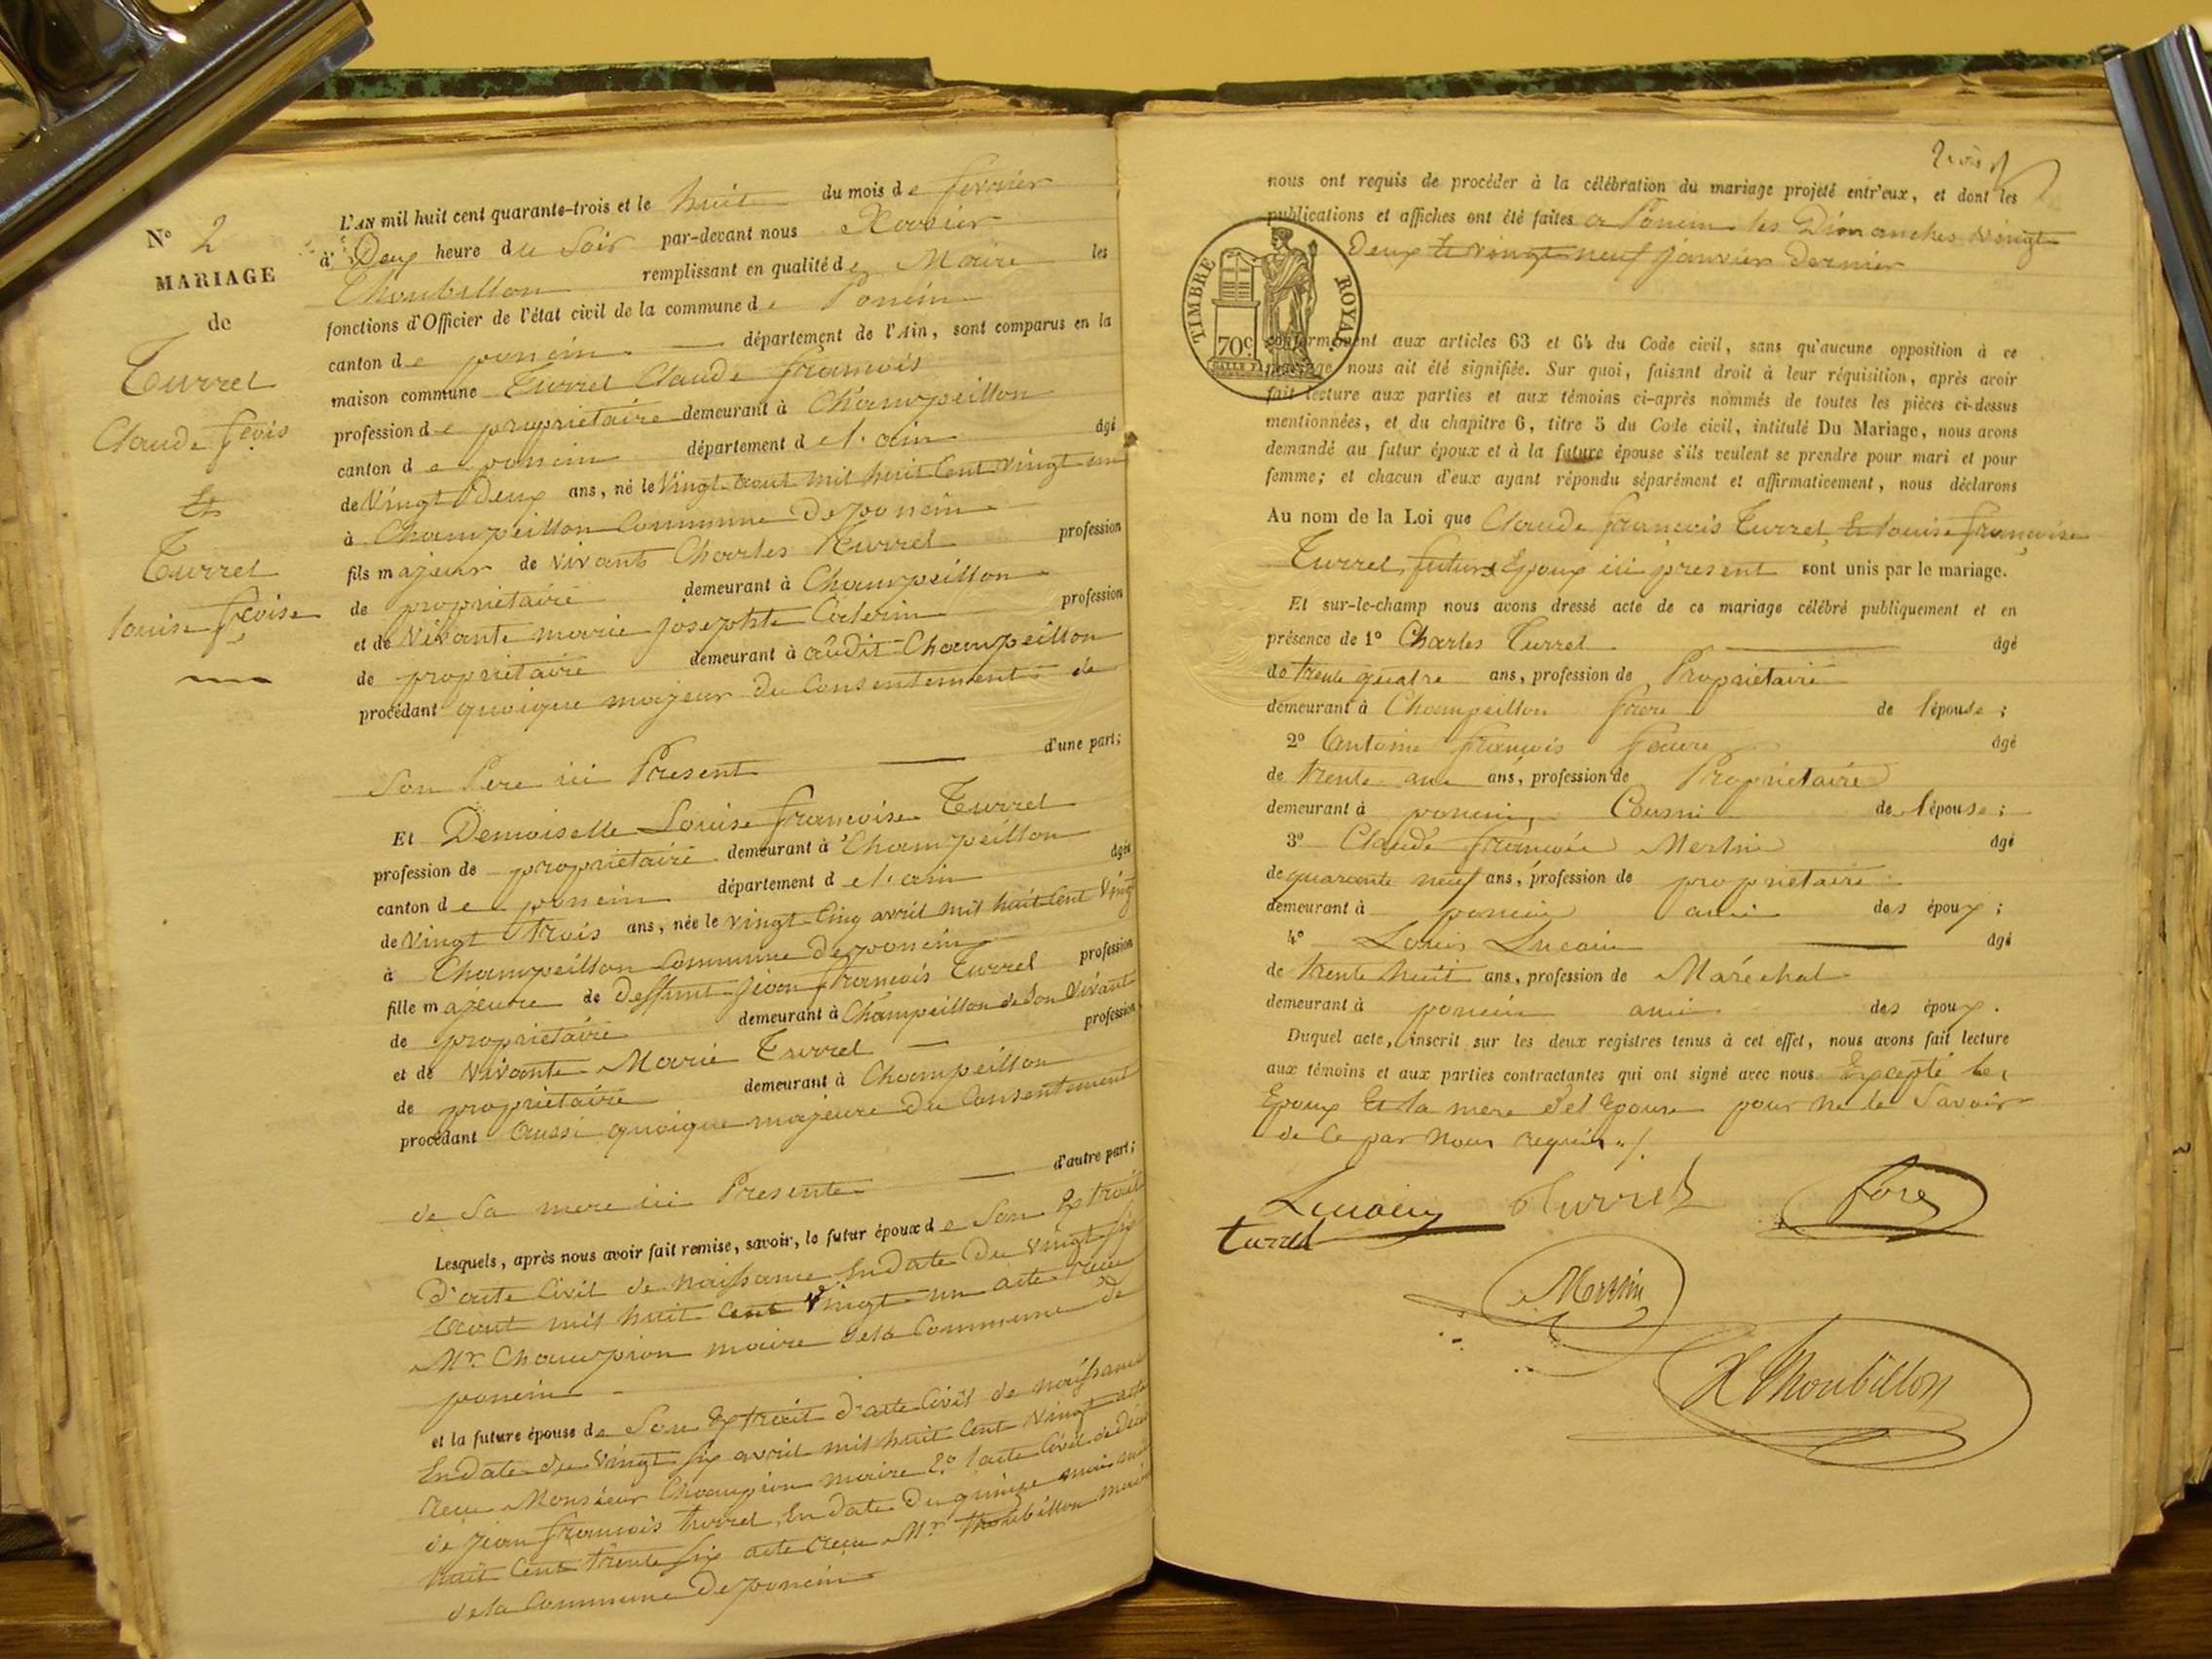 N° 2
MARIAGE
de
Turrel
Claude fçois
Et
Turrel
louise fçoise
L'AN mil huit cent quarante-trois et le huit du mois de fevrier
à Deux heure du Soir par-devant nous Xavier
Thoubillon remplissant en qualité de Maire les
fonctions d'Officier de l'état civil de la commune de Poncin
canton de poncin département de l'Ain, sont comparus en la
maison commune Turrel Claude françois
profession de propriétaire demeurant à Champeillon
canton de poncin département de l'ain âgé
de Vingt Deux ans, né le Vingt aout mil huit Cent Vingt un
à Champeillon Commune De poncin
fils majeur de vivants Charles Turrel profession
de propriétaire demeurant à Champeillon
et de Vivante marie josephte profession
de propriétaire demeurant à audit Champeillon
procédant quoique majeur du Consentement de
Son Pere ici Present d'une part;
Et Demoiselle Louise françoise Turrel
profession de propriétaire demeurant à Champeillon
canton de poncin département de l'ain âgée
de Vingt trois ans, née le vingt Cinq avril mil huit Cent Vingt
à Champeillon Commune De poncin
fille majeure de Deffunt jean françois Turrel profession
de propriétaire demeurant à Champeillon de Son Vivant
et de vivante Marie Turrel profession
de propriétaire demeurant à Champeillon
procédant Aussi quoique majeure Du Consentement
de Sa mere ici Presente d'autre part;
Lesquels, après nous avoir fait remise, savoir, le futur époux de Son Extrait
D'acte Civil de naissance En date Du vingt six
aout mil huit Cent Vingt un acte recu
Mr. Champion maire de la Commune de
poncin
et la future épouse de Son Extrait d'acte Civil de naissance
En date du Vingt six avril mil huit Cent Vingt acte
recu Monsieur Champion maire 2° l'acte Civil de Déces
de jean françois turrel, En date Du quinze mai mil
huit Cent trente six acte recu Mr Thoubillon maire
de la Commune De poncin
trois
nous ont requis de procéder à la célébration du mariage projeté entr'eux, et dont les
publications et affiches ont été faites a Poncin les Dimanches Vingt
Deux Et vingt neuf janvier Dernier
TIMBRE ROYAL
70c
conformément aux articles 63 et 64 du Code civil, sans qu'aucune opposition à ce
mariage nous ait été signifiée. Sur quoi, faisant droit à leur réquisition, après avoir
fait lecture aux parties et aux témoins ci-après nommés de toutes les pièces ci-dessus
mentionnées, et du chapitre 6, titre 5 du Code civil, intitulé Du Mariage, nous avons
demandé au futur époux et à la future épouse s'ils veulent se prendre pour mari et pour
femme; et chacun d'eux ayant répondu séparément et affirmativement, nous déclarons
Au nom de la Loi que Claude françois Turrel Et louise françoise
Turrel, futurs Epoux ici present sont unis par le mariage.
Et sur-le-champ nous avons dressé acte de ce mariage célébré publiquement et en
présence de 1° Charles Turrel âgé
de trente quatre ans, profession de Propriétaire
demeurant à Champeillon frere de l'épouse;
2° Antoine françois âgé
de trente ans, profession de Propriétaire
demeurant à poncin Cousin de l'épouse;
3° Claude françois Merlin âgé
de quarante neuf ans, profession de propriétaire
demeurant à poncin ami des époux;
4° Louis Lucain âgé
de trente huit ans, profession de Maréchal
demeurant à poncin ami des époux.
Duquel acte, inscrit sur les deux registres tenus à cet effet, nous avons fait lecture
aux témoins et aux parties contractantes qui ont signé avec nous Excepté les
Epoux Et la mere de l'Epouse pour ne le Savoir
de Ce par nous requis ./.
Lucain Turrel
turrel
Merlin
X Thoubillon